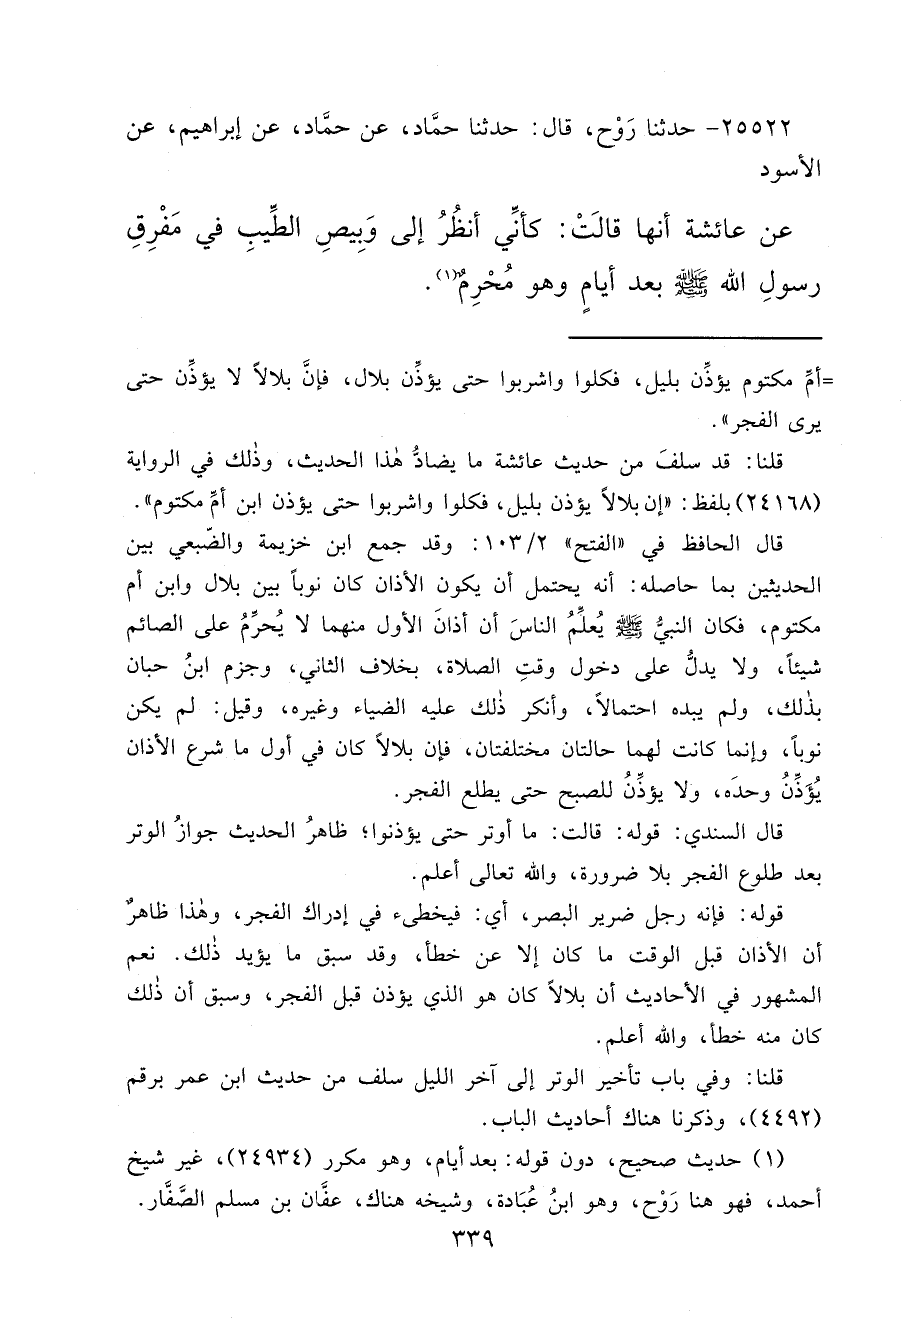 ٢٥٥٢٢- حدثنا رَوْح، قال: حدثنا حمَّاد، عن حمَّاد، عن إبراهيم، عن
الأسود
عن عائشة أنها قالَتْ: كأنِّي أنظُرُ إلى وَبِيصِ الطِّيبِ في مَفْرِقِ
رسولِ الله ﷺ بعد أيامٍ وهو مُحْرِمٌ(١).
=أمِّ مكتوم يؤذِّن بليل، فكلوا واشربوا حتى يؤذِّن بلال، فإنَّ بلالاً لا يؤذِّن حتى
يرى الفجر».
قلنا: قد سلفَ من حديث عائشة ما يضادُّ هٰذا الحديث، وذٰلك في الرواية
(٢٤١٦٨) بلفظ: «إن بلالاً يؤذن بليل، فكلوا واشربوا حتى يؤذن ابن أمِّ مكتوم».
قال الحافظ في «الفتح» ١٠٣/٢: وقد جمع ابن خزيمة والضّبعي بين
الحديثين بما حاصله: أنه يحتمل أن يكون الأذان كان نوباً بين بلال وابن أم
مكتوم، فكان النبيُّ ﷺ يُعلِّمُ الناسَ أن أذانَ الأول منهما لا يُحرِّمُ على الصائم
شيئاً، ولا يدلُّ على دخول وقتِ الصلاة، بخلاف الثاني، وجزم ابنُ حبان
بذٰلك، ولم يبده احتمالاً، وأنكر ذٰلك عليه الضياء وغيره، وقيل: لم يكن
نوباً، وإنما كانت لهما حالتان مختلفتان، فإن بلالاً كان في أول ما شرع الأذان
يُؤَذِّنُ وحدَه، ولا يؤذِّنُ للصبح حتى يطلع الفجر.
قال السندي: قوله: قالت: ما أوتر حتى يؤذنوا؛ ظاهرُ الحديث جوازُ الوتر
بعد طلوع الفجر بلا ضرورة، والله تعالى أعلم.
قوله: فإنه رجل ضرير البصر، أي: فيخطىء في إدراك الفجر، وهٰذا ظاهرٌ
أن الأذان قبل الوقت ما كان إلا عن خطأ، وقد سبق ما يؤيد ذٰلك. نعم
المشهور في الأحاديث أن بلالاً كان هو الذي يؤذن قبل الفجر، وسبق أن ذٰلك
كان منه خطأ، والله أعلم.
قلنا: وفي باب تأخير الوتر إلى آخر الليل سلف من حديث ابن عمر برقم
(٤٤٩٢)، وذكرنا هناك أحاديث الباب.
(١) حديث صحيح، دون قوله: بعد أيام، وهو مكرر (٢٤٩٣٤)، غير شيخ
أحمد، فهو هنا رَوْح، وهو ابنُ عُبَادة، وشيخه هناك، عفَّان بن مسلم الصَّفَّار.
٣٣٩